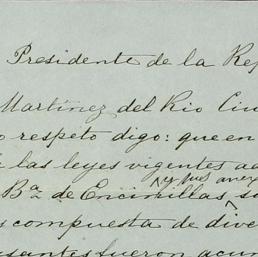 Presidente de la Rep
Martínez del Rio Ciu
o respeto digo: que en
las leyes vigentes
y sus anex
Bª de Encinillas, s
compuesta de dive
santes fueron acum